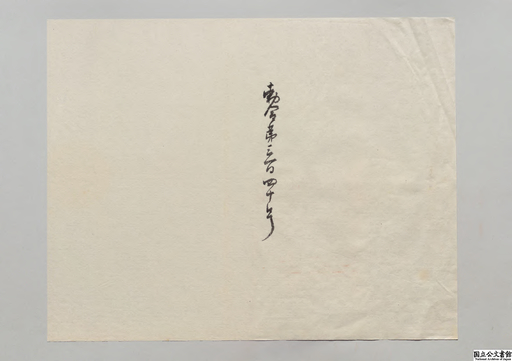 勅令第三百四十号
国立公文書館
National Archives of Japan